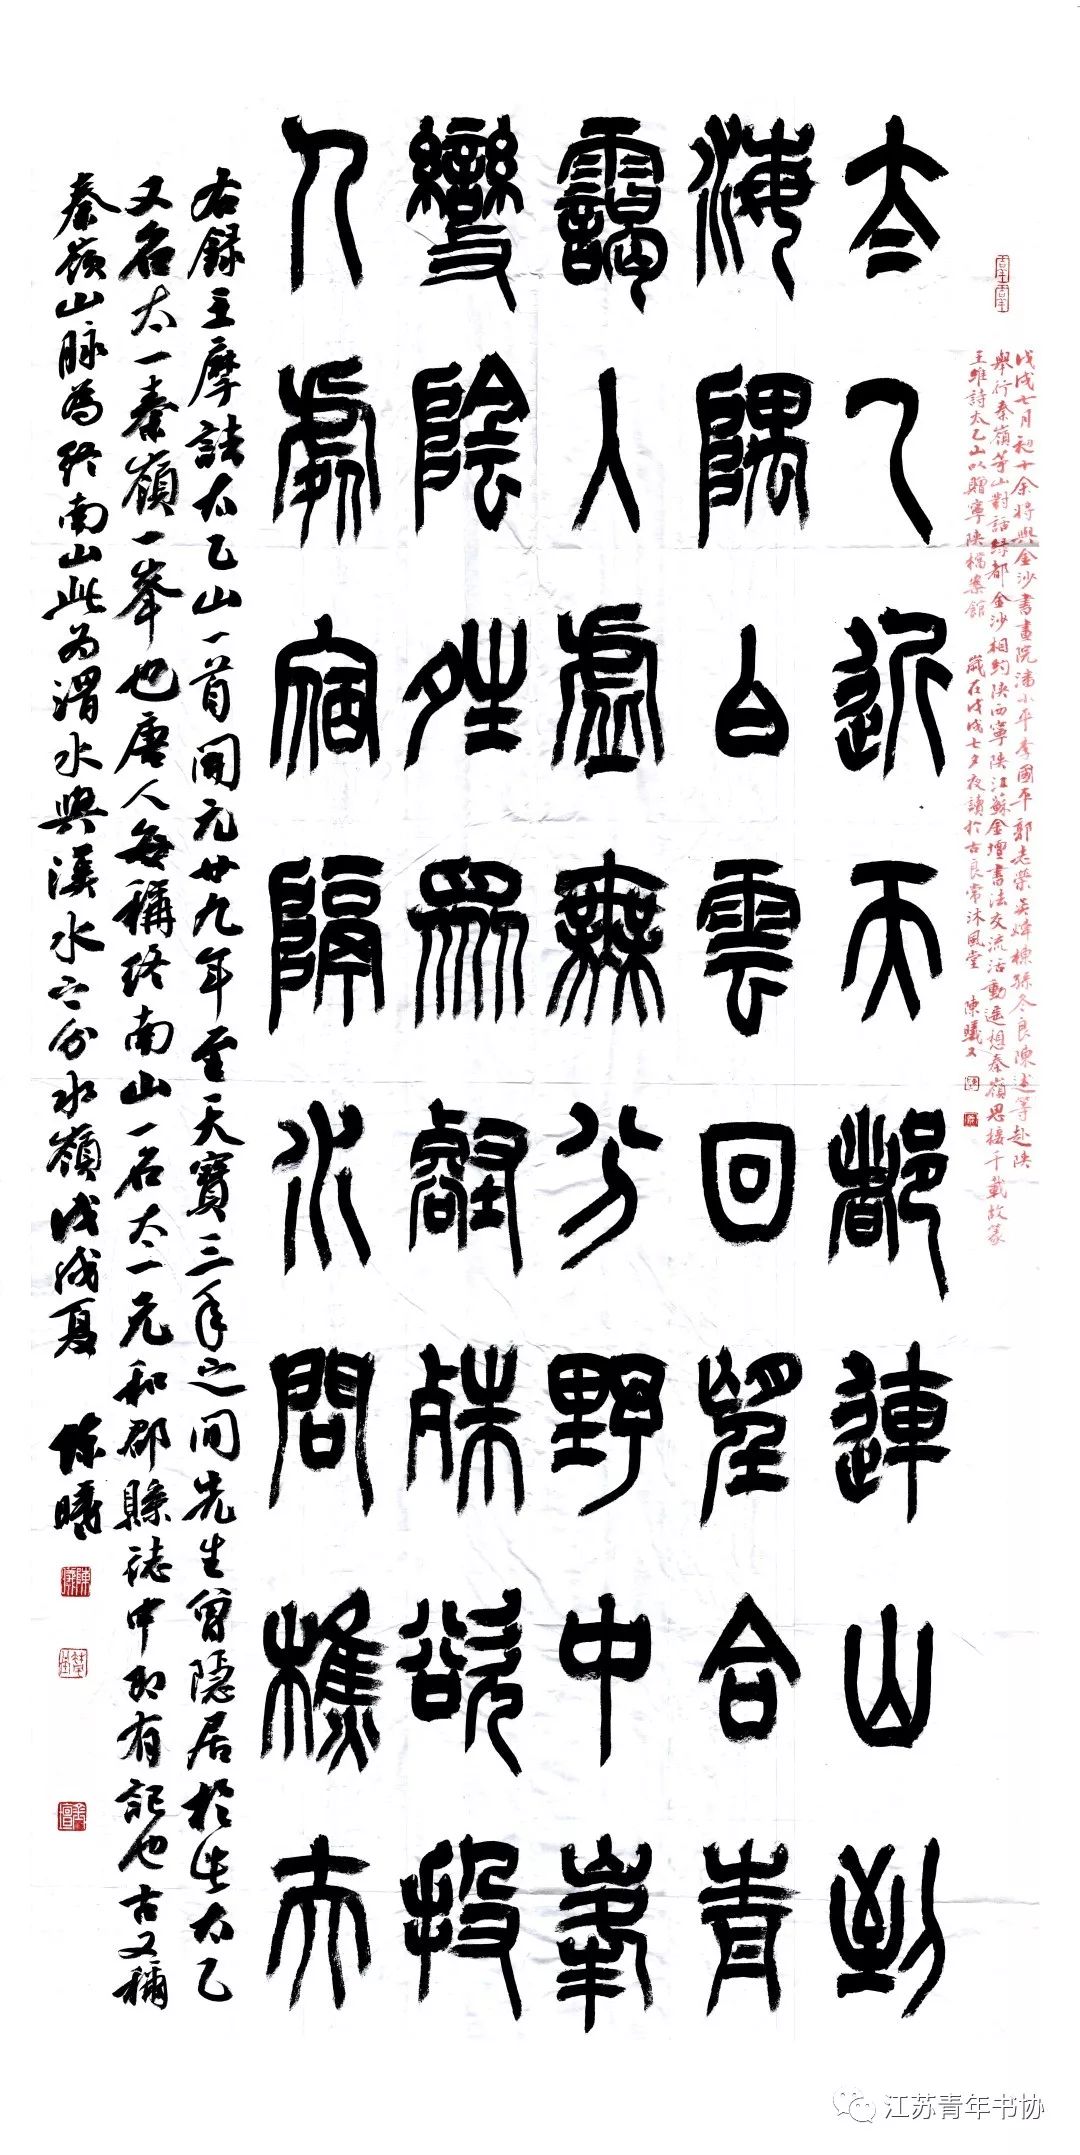 太乙近天都連山到
海隅白雲回望合青
靄入虛無分野中峯
變陰晴眾壑殊欲投
人處宿隔水問樵夫
右録王摩詰太乙山一首開元廿九年至天寶三年之間先生曾隱居於此太乙
又名太一秦嶺一峯也唐人每稱終南山一名太一元和郡縣誌中即有記也古又稱
秦嶺山脉為終南山此為渭水與漢水之分水嶺戊戌夏 陳曦
戊戌七月初十余將與金沙書畫院潘小平李國平郭志榮吴煒棟孫冬良陳述等赴陝
舉行秦嶺等山對話緑都金沙相約陝西寧陝江蘇金壇書法交流活動遥想秦嶺思接千載故篆
王維詩太乙山以贈寧陝檔案館 歲在戊戌七夕夜讀於古良常沐風堂 陳曦又
江苏青年书协